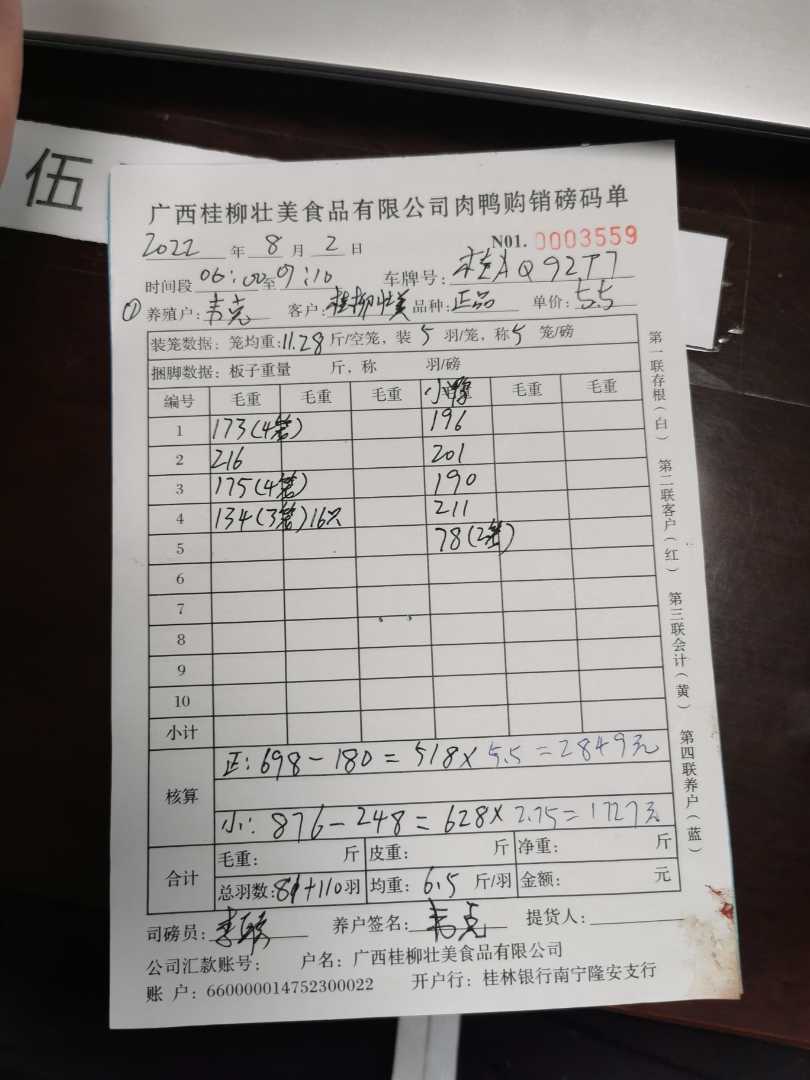 伍
广西桂柳壮美食品有限公司肉鸭购销磅码单
2022 年 8 月 2 日 N01. 0003559
时间段 06:00至07:10 车牌号: 桂A Q92T7
① 养殖户: 韦克 客户: 桂柳壮美 品种: 正品 单价: 5.5
装笼数据: 笼均重: 11.28 斤/空笼, 装 5 羽/笼, 称 5 笼/磅
捆脚数据: 板子重量 斤, 称 羽/磅
编号 毛重 毛重 毛重 小鸭 毛重 毛重
1 173(4笼) 196
2 216 201
3 175(4笼) 190
4 134(3笼)16只 211
5 78(2笼)
6
7
8
9
10
小计
核算 正: 698-180=518×5.5=2849元
小: 876-248=628×2.75=1727元
合计 毛重: 斤 皮重: 斤 净重: 斤
总羽数: 81+110羽 均重: 6.5 斤/羽 金额: 元
司磅员: 养户签名: 韦克 提货人:
公司汇款账号: 户名: 广西桂柳壮美食品有限公司
账 户: 660000014752300022 开户行: 桂林银行南宁隆安支行
第一联存根(白) 第二联客户(红) 第三联会计(黄) 第四联养户(蓝)